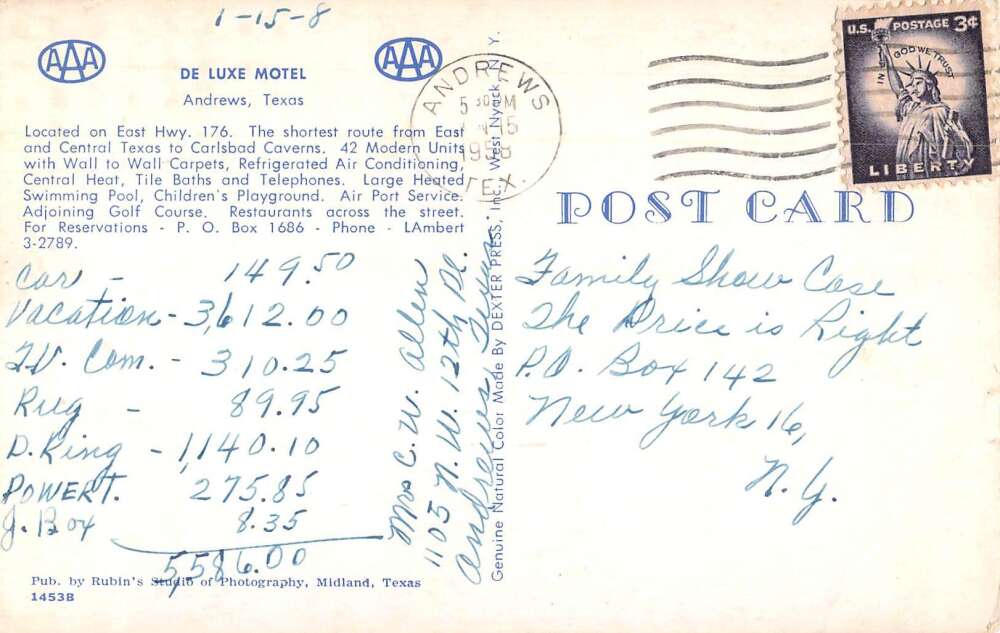 1-15-8
AAA
AAA
DE LUXE MOTEL
Andrews, Texas
Located on East Hwy. 176. The shortest route from East
and Central Texas to Carlsbad Caverns. 42 Modern Units
with Wall to Wall Carpets, Refrigerated Air Conditioning,
Central Heat, Tile Baths and Telephones. Large Heated
Swimming Pool, Children's Playground. Air Port Service.
Adjoining Golf Course. Restaurants across the street.
For Reservations - P. O. Box 1686 - Phone - LAmbert
3-2789.
Car - 149.50
Vacation - 3,612.00
T.V. Com. - 310.25
Rug - 89.95
D. Ring - 1,140.10
POWER T. 275.85
J. Box 8.35
5,586.00
Pub. by Rubin's Studio of Photography, Midland, Texas
1453B
Mrs C. W. Allen
1105 N. W. 12th Pl.
Andrews, Texas
Genuine Natural Color Made By DEXTER PRESS, Inc., West Nyack, N. Y.
ANDREWS
5 30 PM
15
1958
TEX.
U.S. POSTAGE 3¢
IN GOD WE TRUST
LIBERTY
POST CARD
Family Show Case
The Price is Right
P.O. Box 142
New York 16,
N.Y.